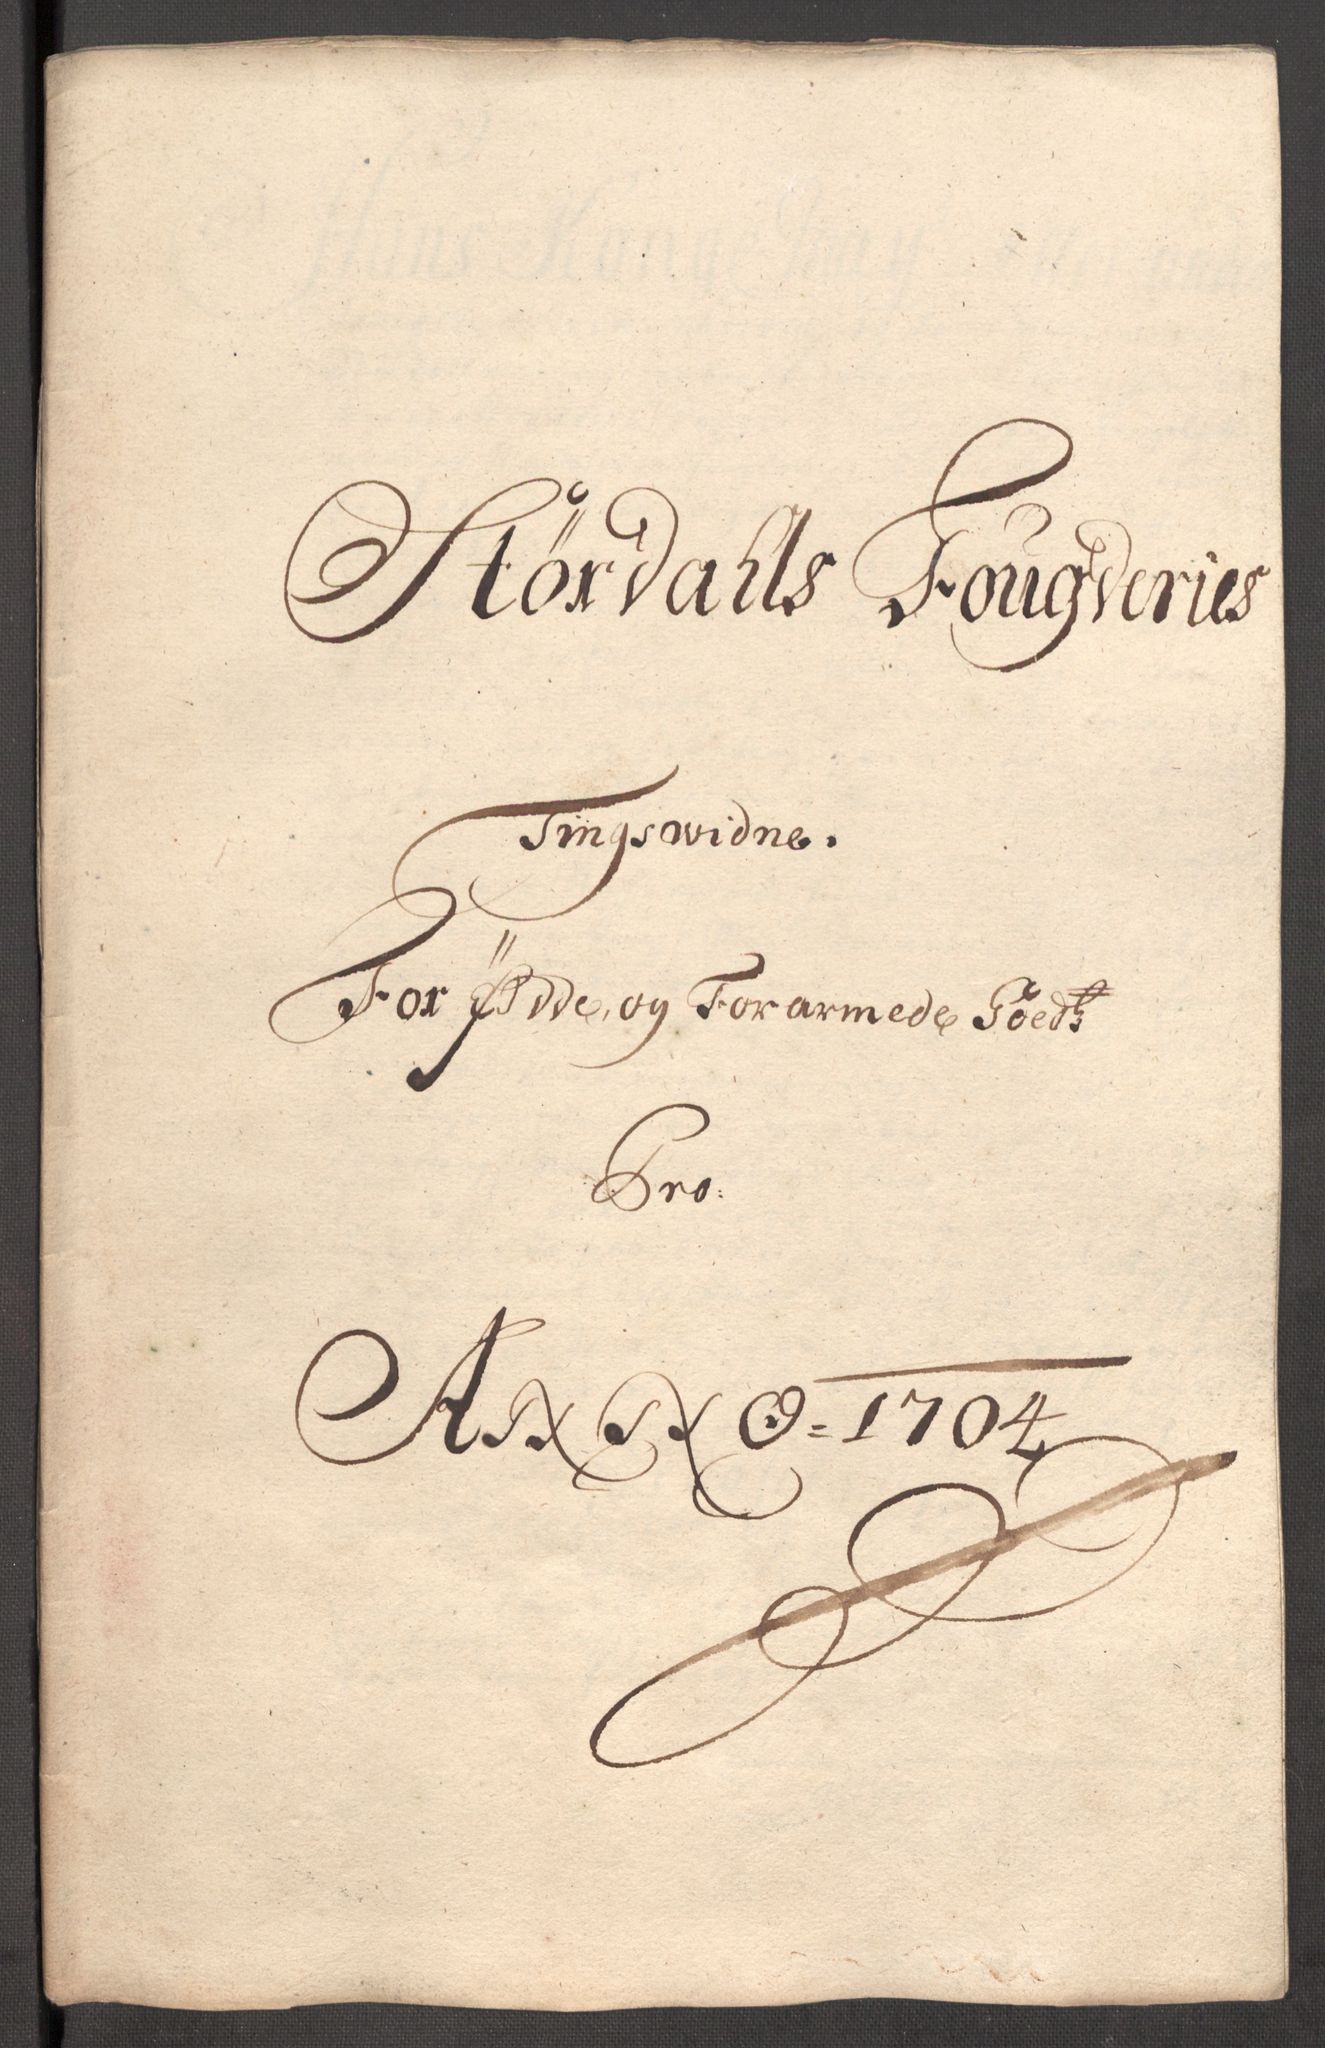 Stördahls Fougderies
Tingswidne.
For Öde, og Forarmede Goedtz
Pro:
ANNO = 1704